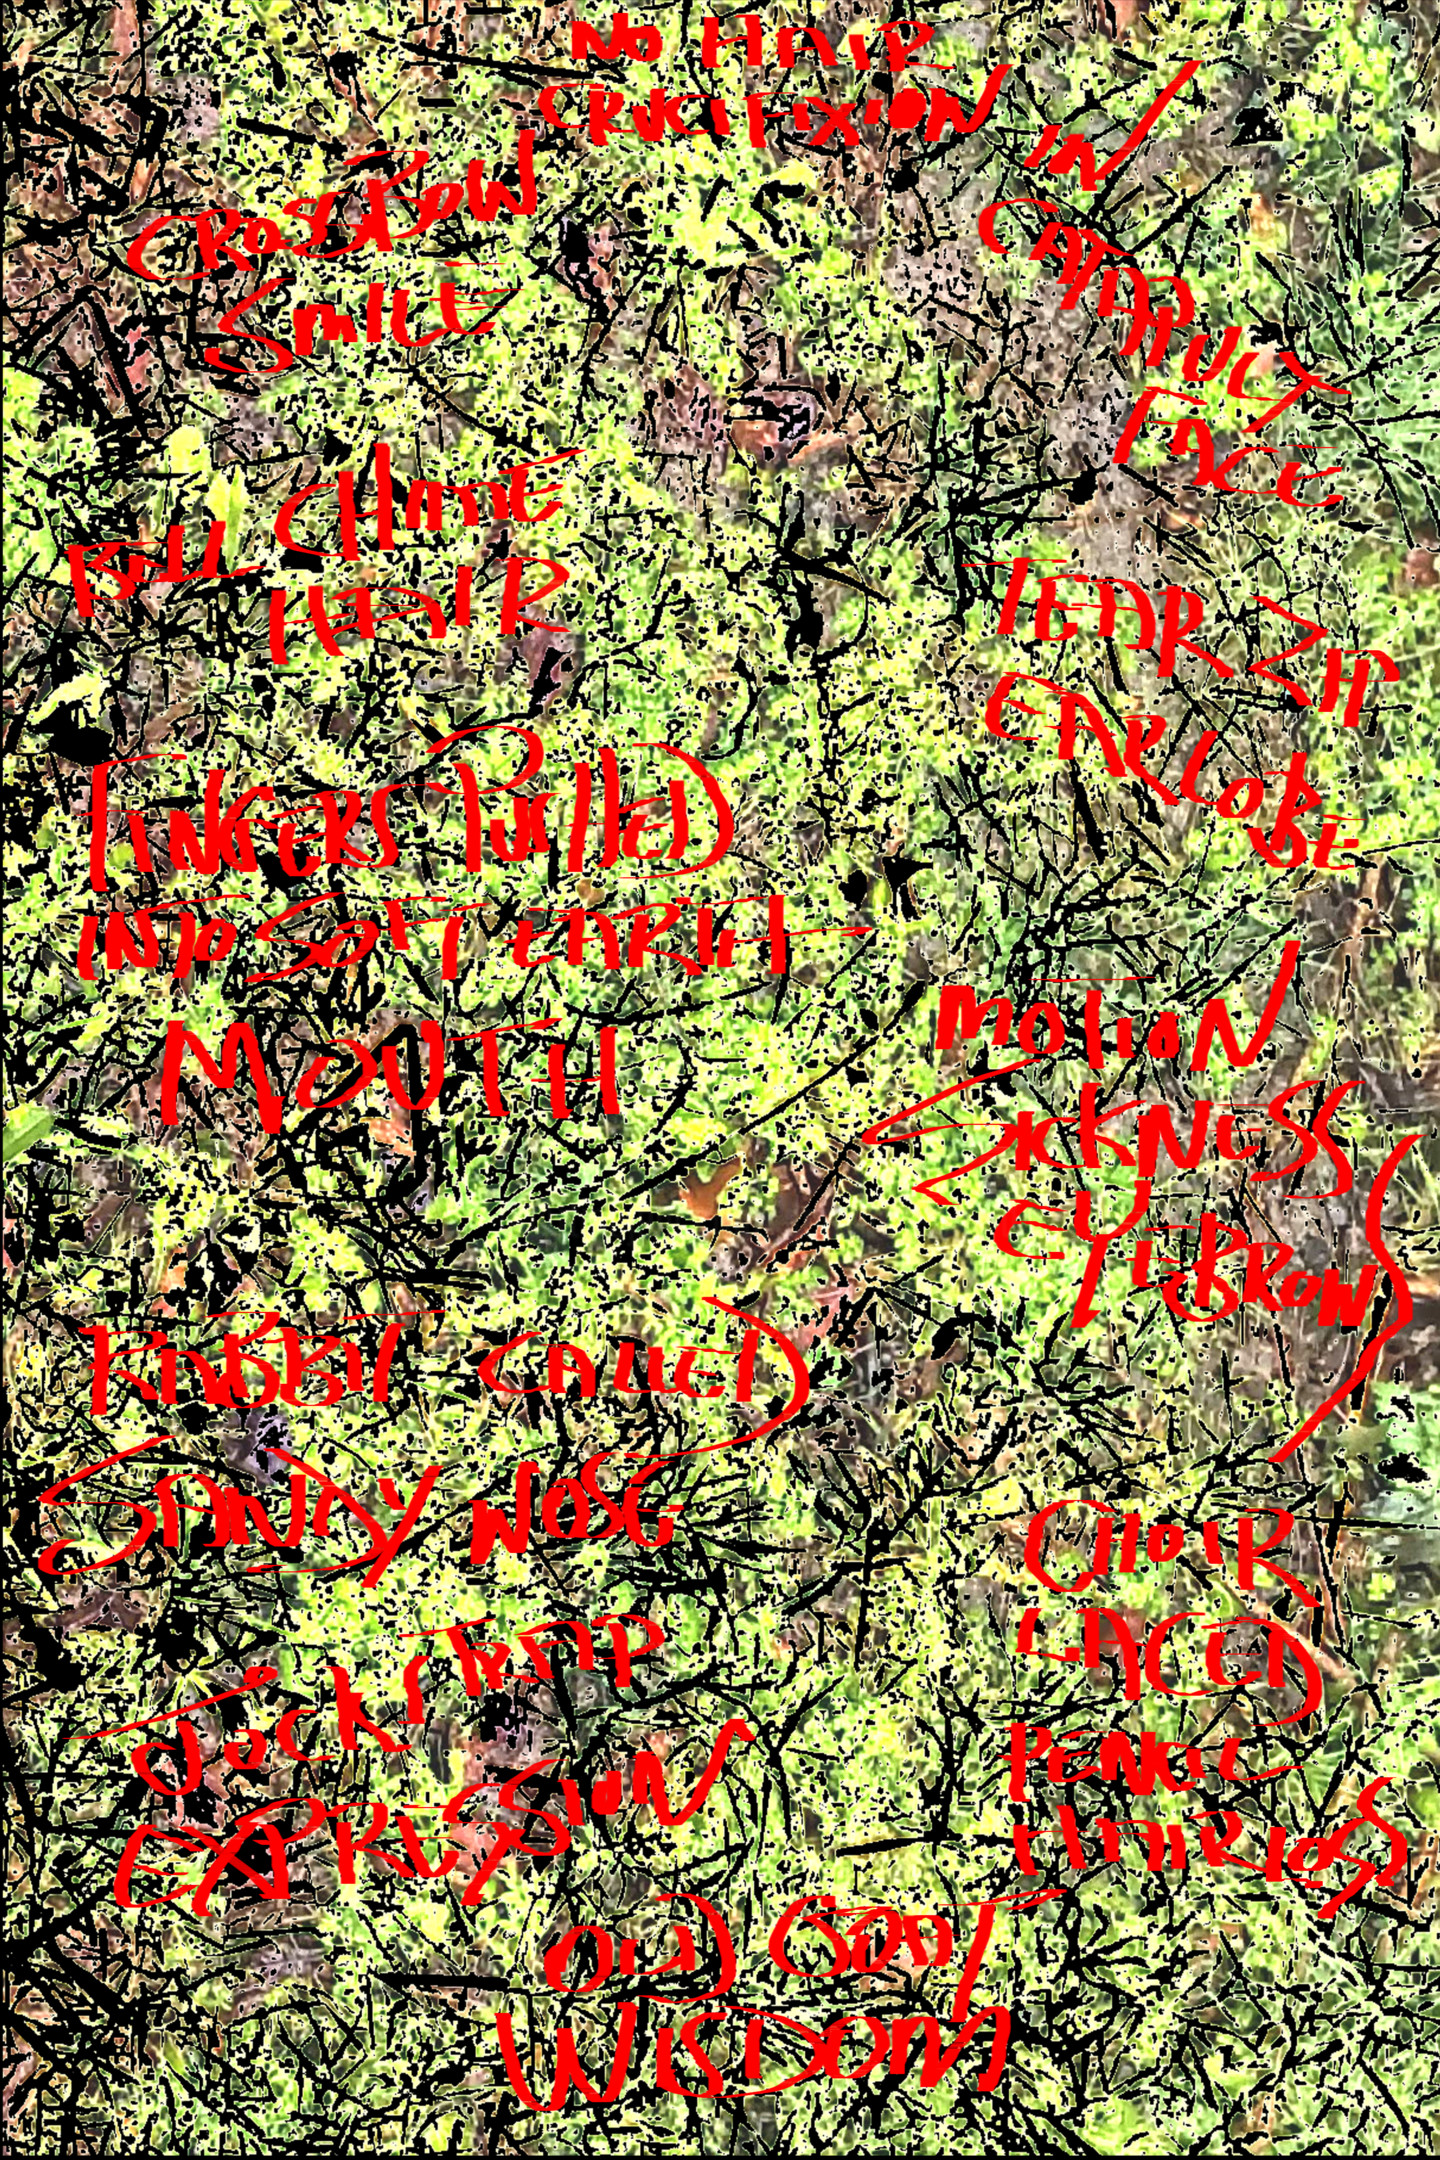 NO HAIR
CRUCIFIXION
IN
CATAPULT
FACE
CROSSBOW
SMILE
BELL CHIME
HAIR
TEAR ZIP
EARLOBE
FINGERS PUSHED
INTO SOFT EARTH
MOUTH
MOTION
SICKNESS
EYEBROW
RABBIT CALLED
SANDY NOSE
CHOIR
LACED
PENCIL
HAIRLOSS
JOCKSTRAP
EXPRESSION
OLD GOAT
WISDOM